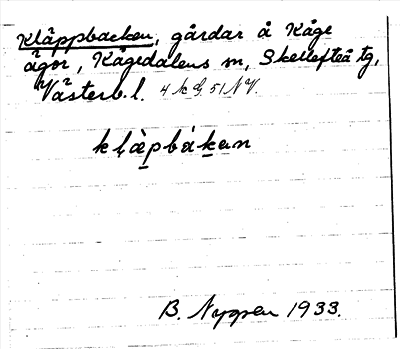 Kläppbacken, gårdar å Kåge
ägor, Kågedalens sn, Skellefteå tg,
Västerb. l. 51 NV.
kḷàpbákan
B. Nygren 1933.